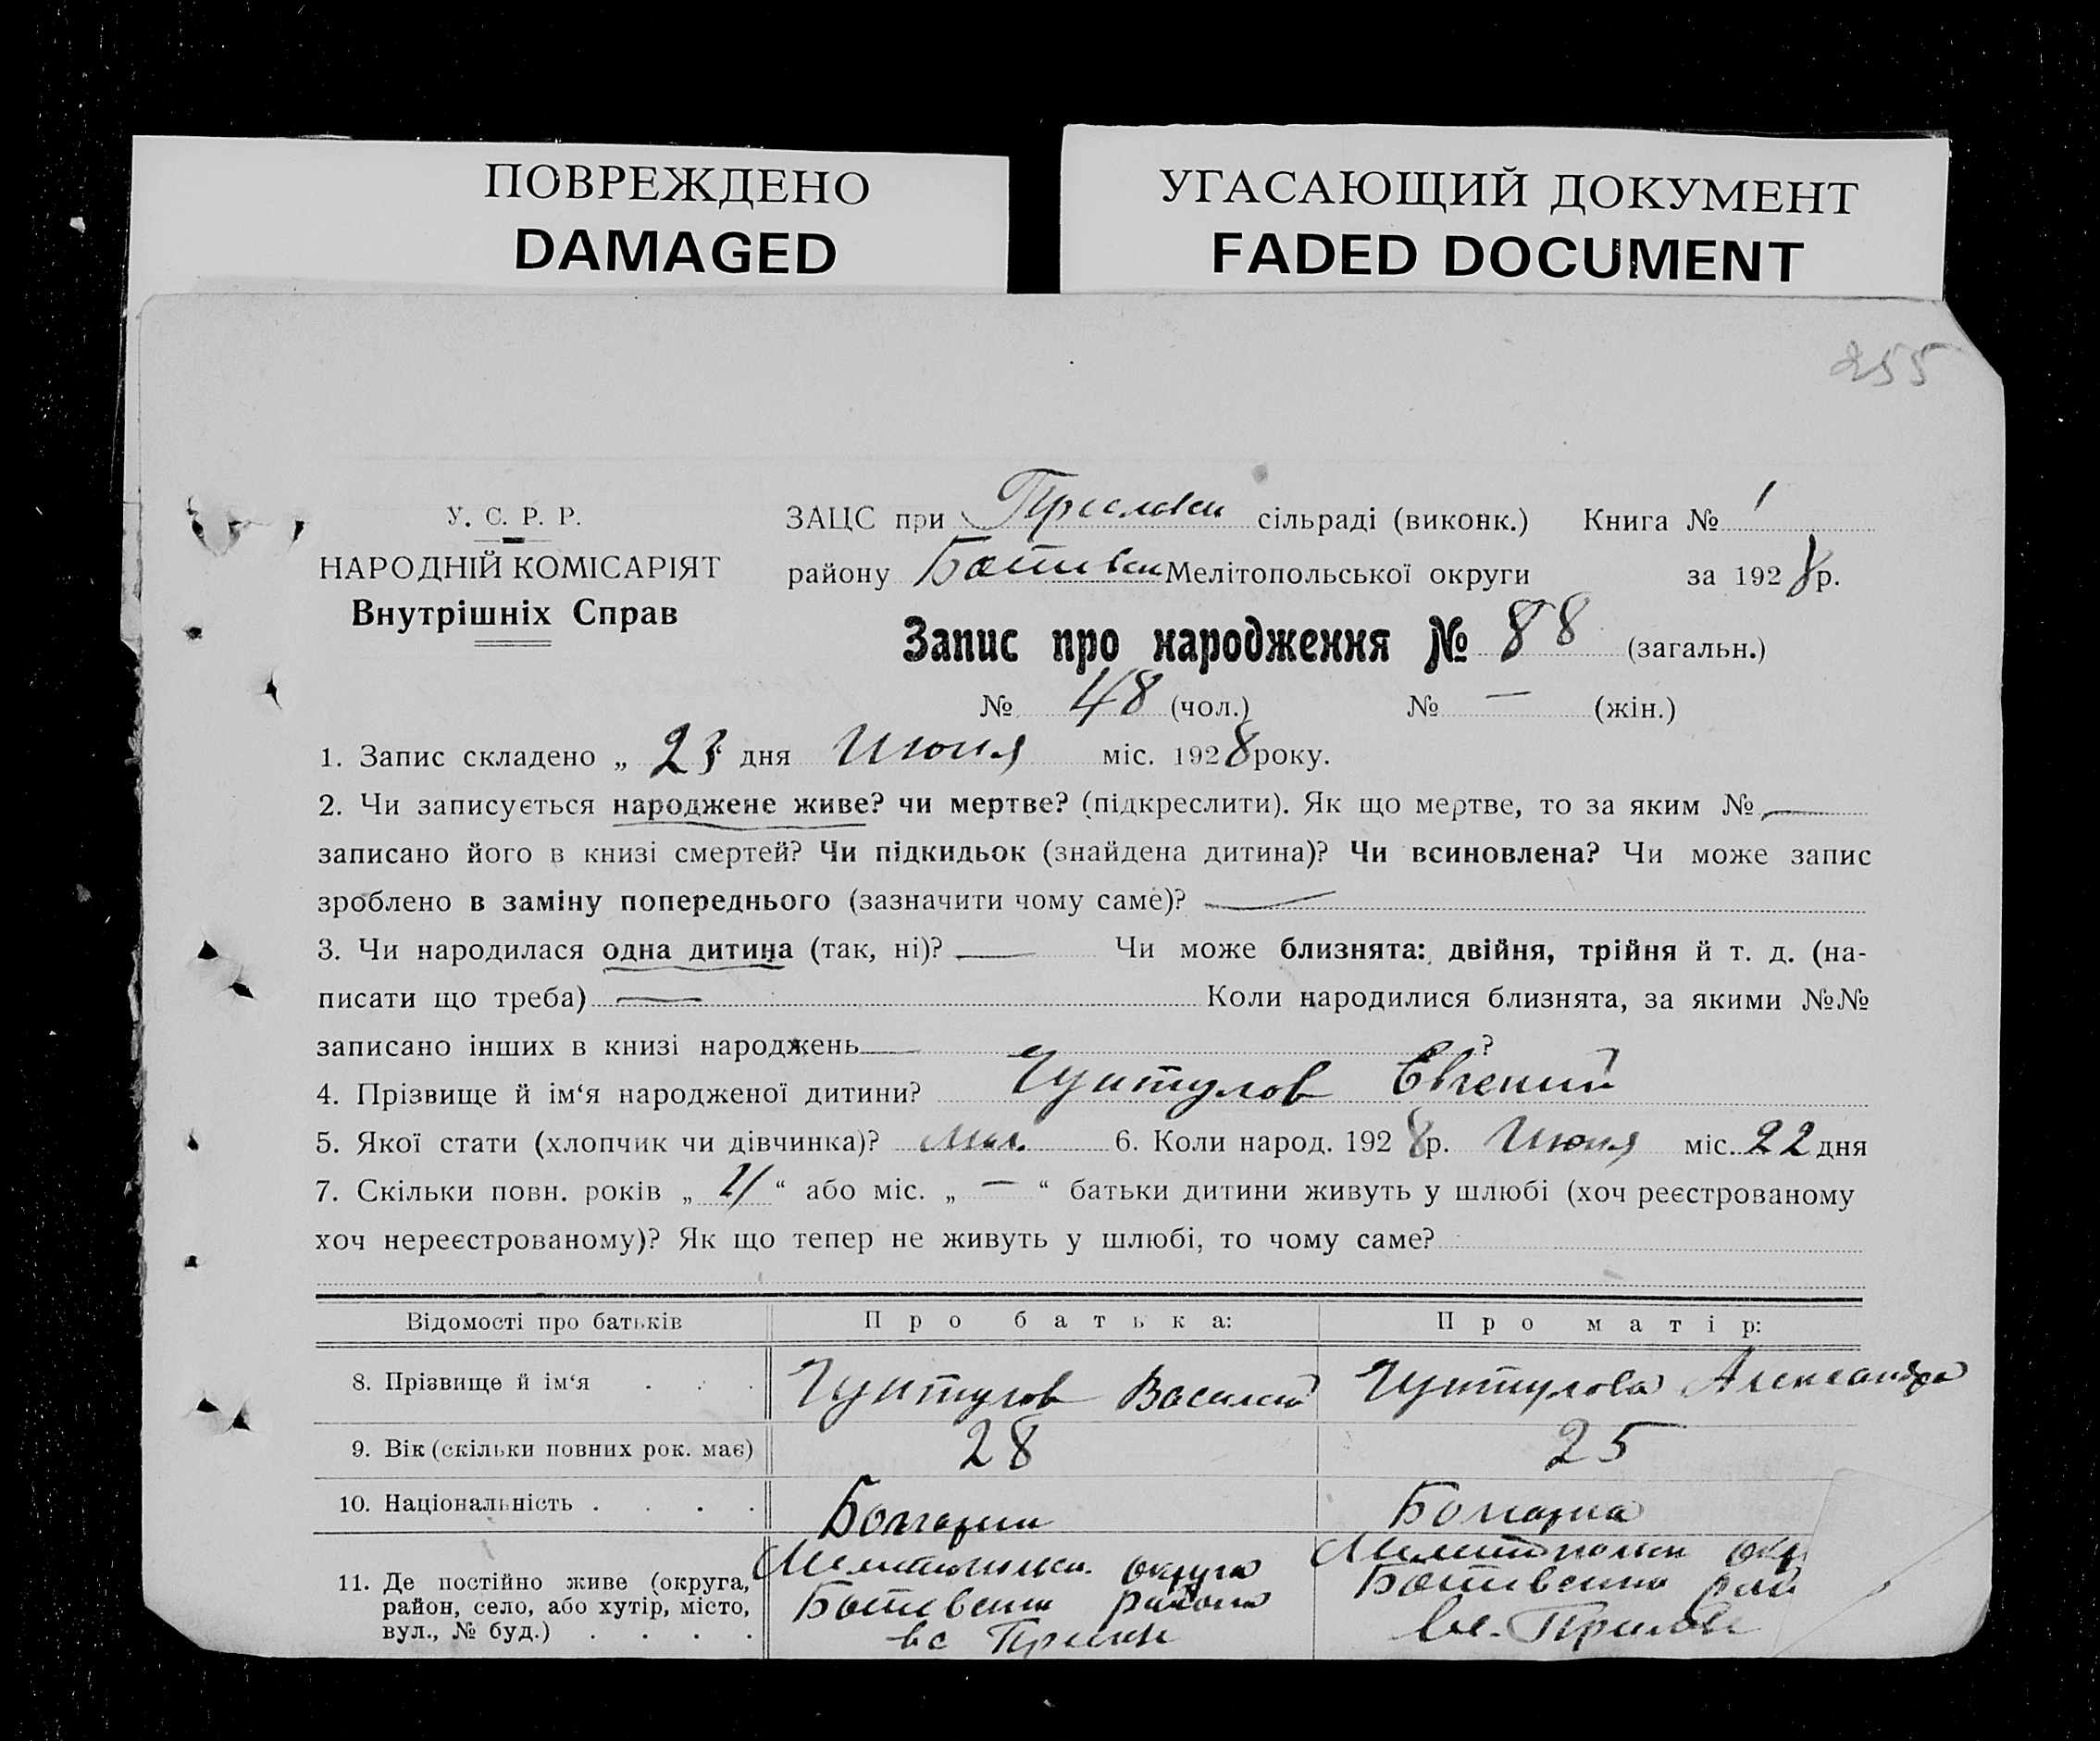 ПОВРЕЖДЕНО
DAMAGED
УГАСАЮЩИЙ ДОКУМЕНТ
FADED DOCUMENT
255
У. С. Р. Р.
НАРОДНІЙ КОМІСАРІЯТ
Внутрішніх Справ
ЗАЦС при Преславск сільраді (виконк.) Книга № 1
району Ботивск Мелітопольської округи за 1928 р.
Запис про народження № 88 (загальн.)
№ 48 (чол.) № — (жін.)
1. Запис складено „ 23 дня Июня міс. 1928 року.
2. Чи записується народжене живе? чи мертве? (підкреслити). Як що мертве, то за яким № —
записано його в книзі смертей? Чи підкидьок (знайдена дитина)? Чи всиновлена? Чи може запис
зроблено в заміну попереднього (зазначити чому саме)? —
3. Чи народилася одна дитина (так, ні)? — Чи може близнята: двійня, трійня й т. д. (на-
писати що треба) — Коли народилися близнята, за якими №№
записано інших в книзі народжень — ?
4. Прізвище й ім‘я народженої дитини? Чунтулов Евгений
5. Якої стати (хлопчик чи дівчинка)? мал. 6. Коли народ. 1928 р. Июня міс. 22 дня
7. Скільки повн. років „ “ або міс. „ — “ батьки дитини живуть у шлюбі (хоч реєстрованому
хоч нереєстрованому)? Як що тепер не живуть у шлюбі, то чому саме?
Відомості про батьків Про батька: Про матір:
8. Прізвище й ім‘я . . . Чунтулов Василий Чунтулова Александра
9. Вік (скільки повних рок. має) 28 25
10. Національність . . . . Болгарин Болгарка
11. Де постійно живе (округа, район, село, або хутір, місто, вул., № буд.) . . . .
Мелитопольск. округа
Ботивского района
Мелитопольск окр
Ботивского рай